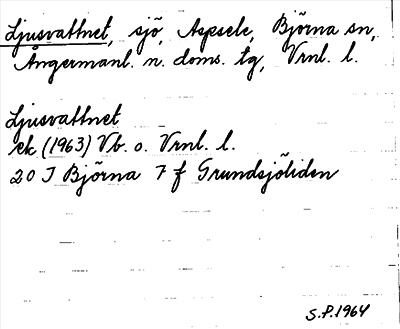 Ljusvattnet, sjö, Aspsele, Björna sn,
Ångermanl. n. doms. tg, Vrnl. l.
Ljusvattnet
ek (1963) Vb. o. Vrnl. l.
20 J Björna 7 f Grundsjöliden
S.P.1964